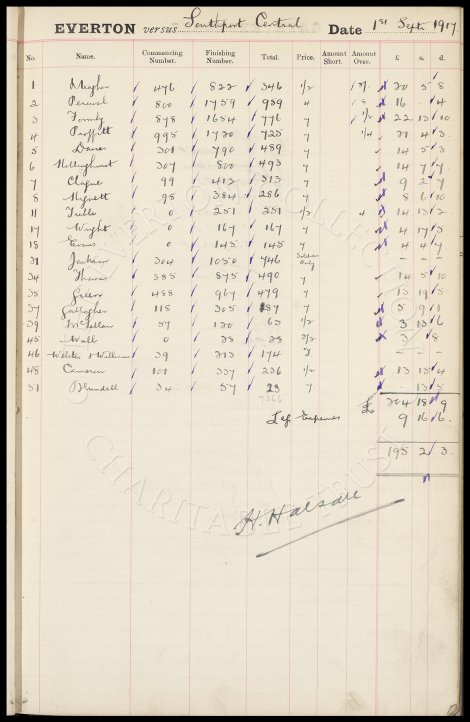 EVERTON versus Southport Central Date 1st Septr 1917
No. Name. Commencing Number. Finishing Number. Total. Price. Amount Short. Amount Over. £ s. d.
1 Meagher 476 822 346 1/2 20 5 8
2 Percival 800 1759 959 4 8 16 4
3 878 1654 776 4 22 13 10
4 Proffitt 995 1720 725 4 1/4 21 4 3
5 Davies 301 790 489 4 14 5 3
6 Hollinghurst 307 800 493 4 14 7 7
7 Clague 99 412 313 4 9 2 7
8 Hignett 98 384 286 4 8 6 10
11 Treble 0 251 251 1/2 4 14 13 2
17 Wright 0 167 167 4 4 17 5
18 Evans 0 145 145 4 4 4 7
31 Jackson 304 1050 746 Soldiers Only — — —
34 Thomas 385 875 490 4 14 5 10
35 Green 488 967 479 4 13 19 5
37 Gallagher 118 305 187 4 5 9 1
39 McLellan 57 120 63 1/2 3 13 6
45 Wall 0 28 28 3 8
46 Webster & Williams 39 213 174 — — —
48 Cameron 101 337 236 1/2 13 13 4
51 Blundell 34 57 23 13 5
7266 £ 204 18 9
Less Expenses 9 16 6
195 2 3
H. Halsall
EVERTON COLLECTION
CHARITABLE TRUST